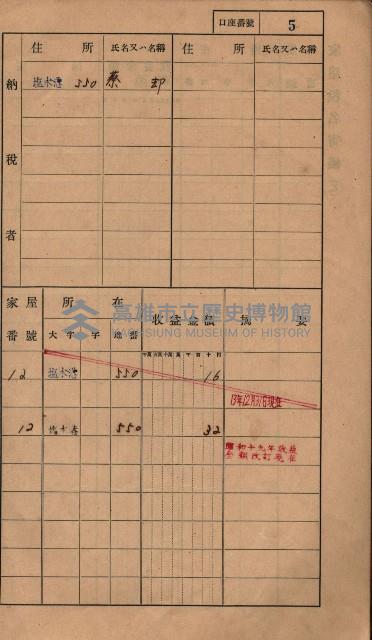 口座番號 5
住所 氏名又ハ名稱 住所 氏名又ハ名稱
納稅者
塩水港 550 蔡 却
高雄市立歷史博物館
KAOHSIUNG MUSEUM OF HISTORY
家屋番號 所在 收益金額 摘要
大字 字 地番
12 塩水港 550 16
13年12月31日現在
12 550 32
昭和十九年